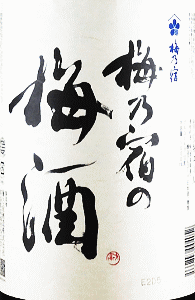 梅乃宿の
梅酒
梅乃宿